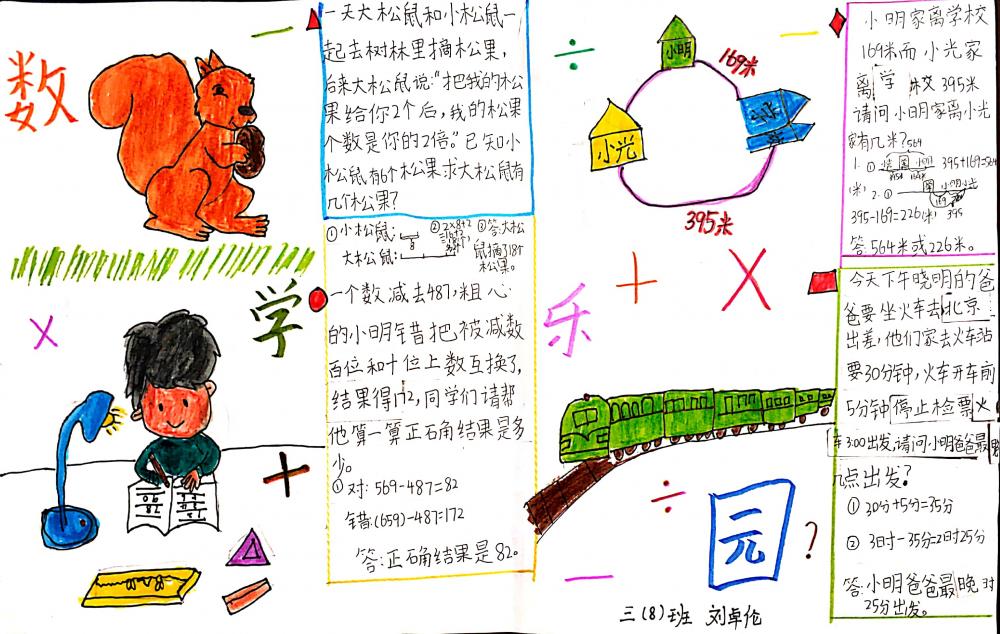 数
学
乐
园
一天大松鼠和小松鼠一
起去树林里摘松果，
后来大松鼠说："把我的松
果给你2个后，我的松果
个数是你的2倍。"已知小
松鼠有6个松果求大松鼠有
几个松果？
①小松鼠：
8
大松鼠：
②2×8+2
=16+2
=18(个)
③答:大松
鼠摘了18个
松果。
一个数减去487,粗心
的小明错把被减数
百位和十位上数互换了，
结果得172,同学们请帮
他算一算正确结果是多
少。
①对: 569-487=82
错:(659)-487=172
答:正确结果是82。
小明
169米
学校
小光
395米
小明家离学校
169米而小光家
离学校395米
请问小明家离小光
家有几米？
564
1.①
395+169=564
(米) 2.①
395-169=226(米)
395
答:564米或226米。
今天下午晓明的爸
爸要坐火车去北京
出差,他们家去火车站
要30分钟,火车开车前
5分钟停止检票火
车3:00出发,请问小明爸爸最晚
几点出发？
① 30分+5分=35分
② 3时-35分=2时25分
答:小明爸爸最晚2时
25分出发。
三(8)班 刘卓伦